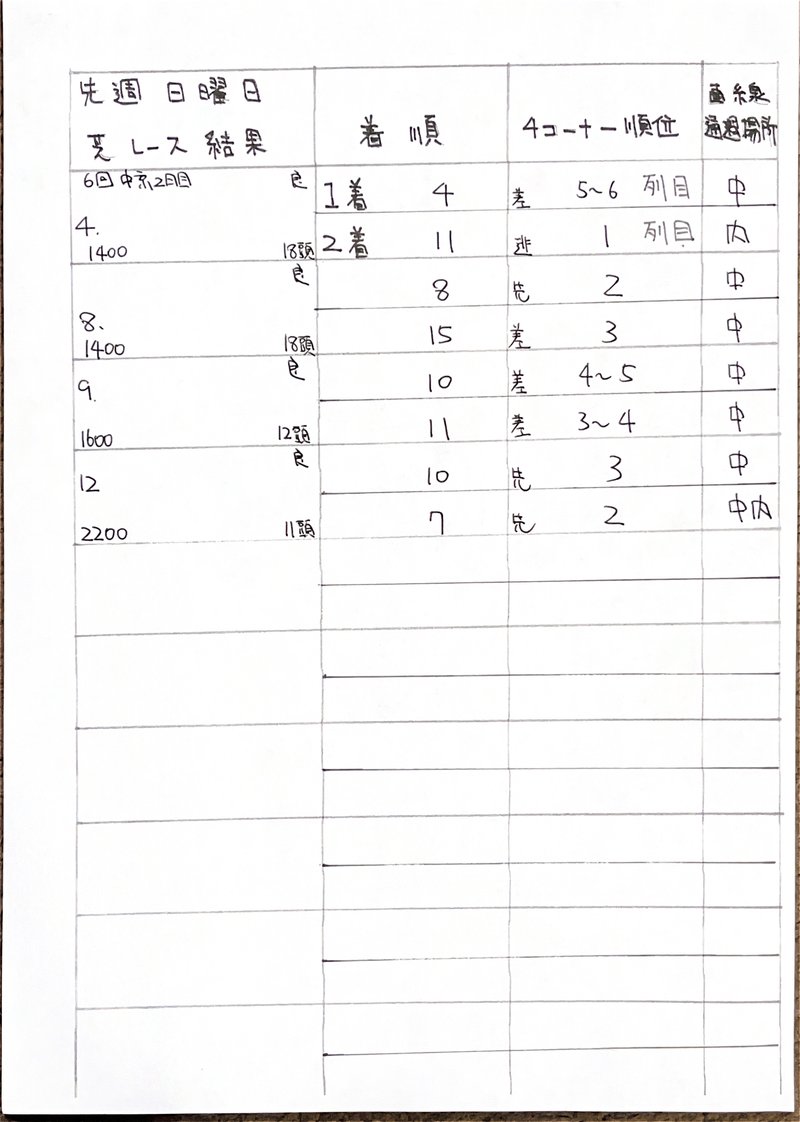 先週 日曜日
芝 レース 結果
着 順
4コーナー順位
直線
通過場所
6回 中京2日目 良
4.
1400 18頭
1着 4 差 5~6 列目 中
2着 11 逃 1 列目 内
良
8.
1400 18頭
8 先 2 中
15 差 3 中
良
9.
1600 12頭
10 差 4~5 中
11 差 3~4 中
良
12
2200 11頭
10 先 3 中
7 先 2 中内